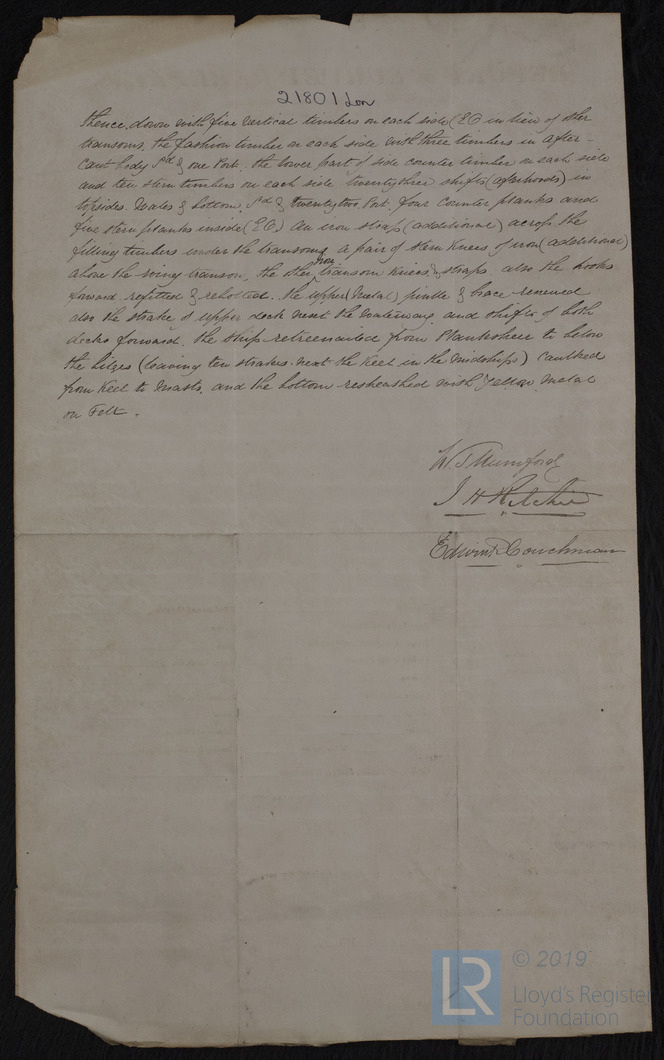 21801 Lon
thence down with five vertical timbers on each side (EO in lieu of the
transoms, the fashion timber on each side with three timbers in after-
cant body Sd & one Port. the lower part of side counter timber on each side
and ten stern timbers on each side twentythree shifts (afterhoods) in
topsides. Wales & bottom, Sd & twentytwo Port, four Counter planks and
five stern planks inside (EO) an iron strap (additional) across the
filling timbers under the transoms, a pair of stern knees of iron (additional)
above the wing transom, the other iron transom knees, straps, also the hooks
forward refitted & rebolted. the upper (metal) pintle & brace renewed
also the strake of upper deck next the waterway, and shifts of both
decks forward. the ship retreenailed from Planksheer to below
the bilges (leaving ten strakes next the keel in the midships) Caulked
from keel to masts, and the bottom resheathed with yellow metal
on Felt.
W. J Mumford
J H Ritchie
Edwin Couchman
LR © 2019
Lloyd's Register
Foundation